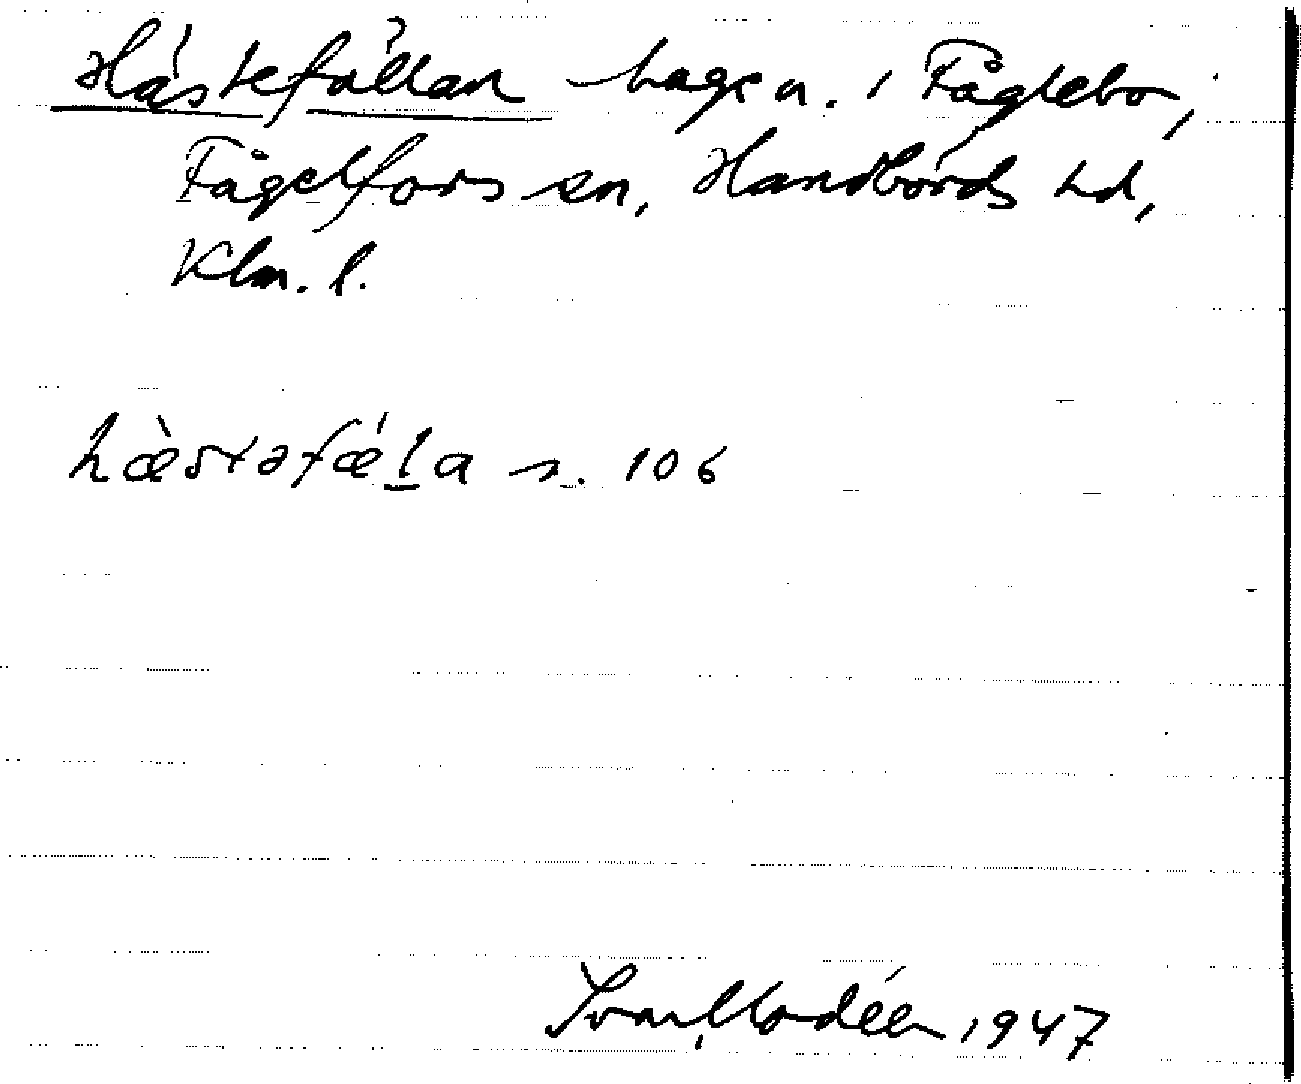 Hästefållan hage n. i Fåglebo,
Fågelfors sn, Handbörds hd,
Klm. l.
hæ̀stəfǽl̲a s. 106
Ivar Modéer, 1947